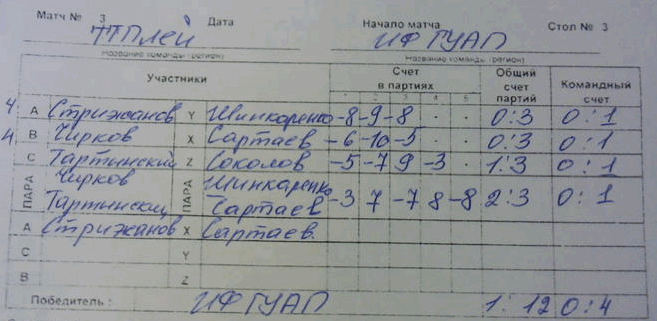 Матч № 3 Дата Начало матча Стол № 3
ТТПлей ИФ ГУАП
Название команды (регион) Название команды (регион)
Участники Счет в партиях Общий счет партий Командный счет
1 2 3 4 5
4. А Стрижанов Y Шинкаренко -8 -9 -8 . . 0:3 0:1
4. В Чирков X Сартаев -6 -10 -5 . . 0:3 0:1
С Тартынский Z Соколов -5 -7 9 -3 . 1:3 0:1
ПАРА Чирков Тартынский ПАРА Шинкаренко Сартаев -3 7 -7 8 -8 2:3 0:1
А Стрижанов X Сартаев.
С Y
В Z
Победитель: ИФ ГУАП 1:12 0:4